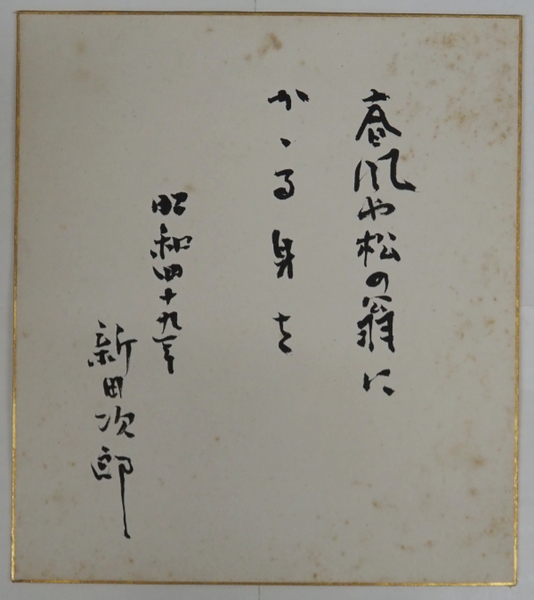 春風や松の翁に
かゝる身を
昭和四十九年
新田次郎